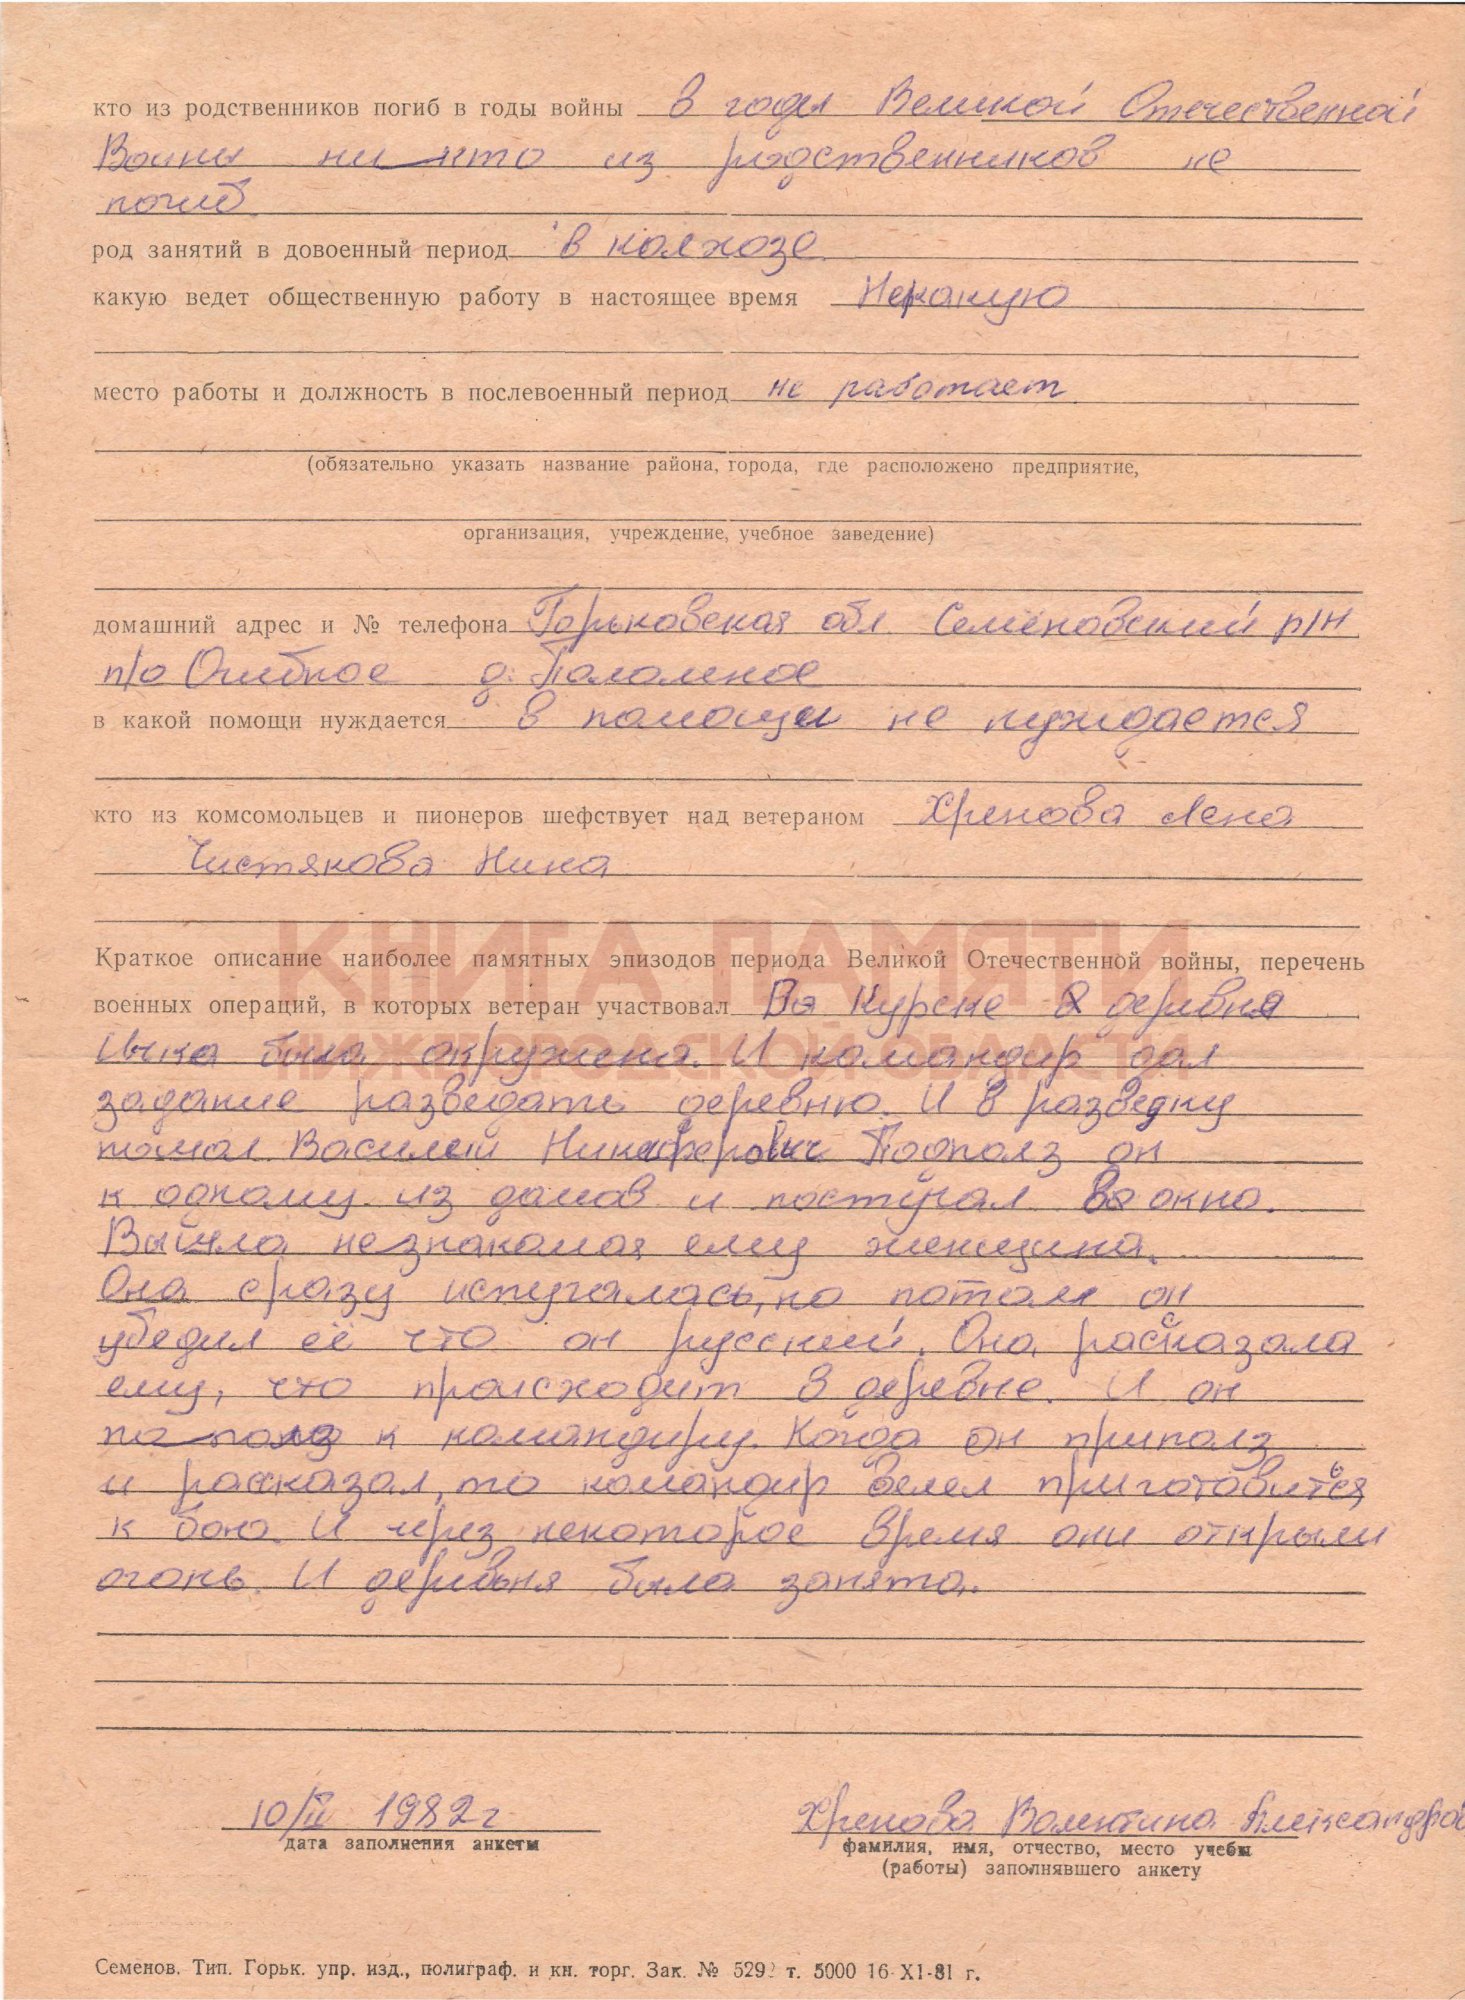 кто из родственников погиб в годы войны в годы Великой Отечественной
Войны ни кто из родственников не
погиб.
род занятий в довоенный период в колхозе.
какую ведет общественную работу в настоящее время Некакую
место работы и должность в послевоенный период не работает.
(обязательно указать название района, города, где расположено предприятие,
организация, учреждение, учебное заведение)
домашний адрес и № телефона Горьковская обл. Семёновский р/н
п/о Огибное д. Поломное
в какой помощи нуждается в помощи не нуждается
кто из комсомольцев и пионеров шефствует над ветераном Хренова Лена
Чистякова Нина
КНИГА ПАМЯТИ
Краткое описание наиболее памятных эпизодов периода Великой Отечественной войны, перечень
военных операций, в которых ветеран участвовал Курске деревня
НИЖЕГОРОДСКОЙ ОБЛАСТИ
была окружена. И командир дал
задание разведать деревню. И в разведку
Василий Никиферович Подполз он
к одному из домов и постучал во окно.
Вышла незнакомая ему женщина.
Она сразу испугалась, но потом он
убедил её что он русский. Она рассказала
ему, что происходит в деревне. И он
пополз к командиру. Когда он приполз
и рассказал, то командир велел приготовиться
к бою. И через некоторое время они открыли
огонь. И деревьня была занята.
10/II 1982 г
дата заполнения анкеты
Хренова Валентина
фамилия, имя, отчество, место учебы
(работы) заполнявшего анкету
Семенов. Тип. Горьк. упр. изд., полиграф. и кн. торг. Зак. № 529 т. 5000 16-XI-81 г.